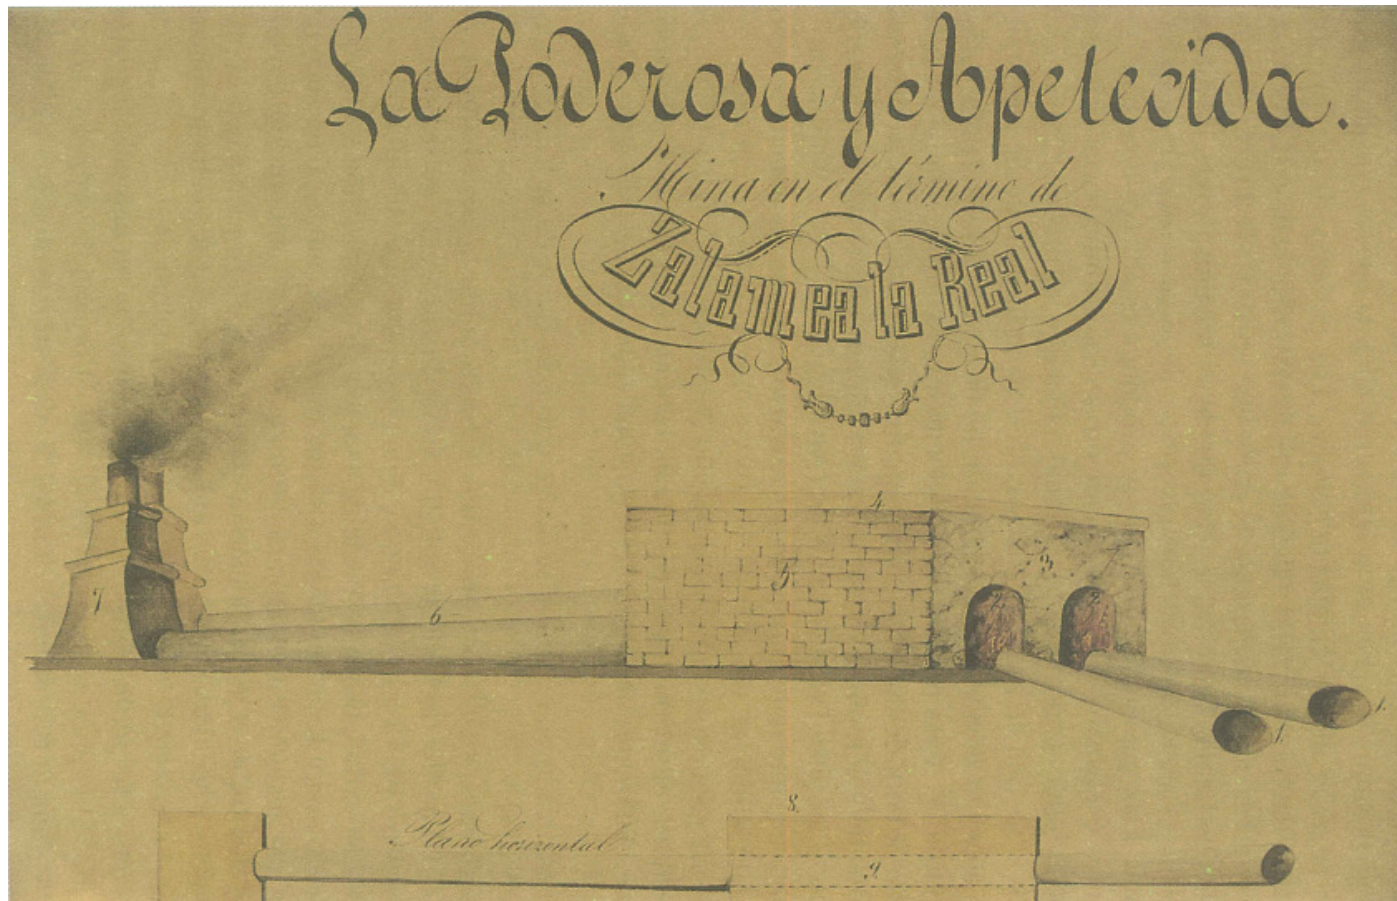 La Poderosa y Apetecida.
Mina en el término de
Zalamea la Real
4.
5.
3
2.
2.
7
6
1.
1.
8.
Plano horizontal.
9.